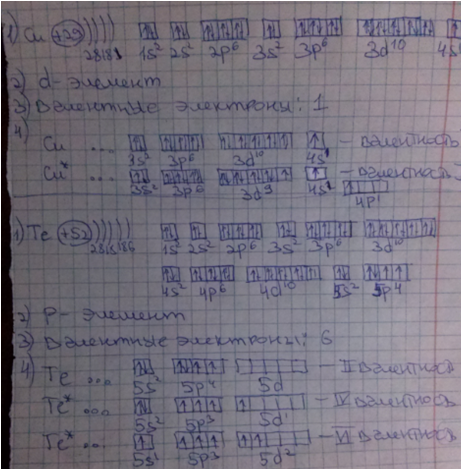 1) Cu +29 ))))
2 8 18 1 1s² 2s² 2p⁶ 3s² 3p⁶ 3d¹⁰ 4s¹
2) d- элемент
3) Валентные электроны: 1
4)
Cu ... 3s² 3p⁶ 3d¹⁰ 4s¹ - валентность
Cu* ... 3s² 3p⁶ 3d⁹ 4s¹ 4p¹ - валентность
1) Te +52 )))))
2 8 18 18 6 1s² 2s² 2p⁶ 3s² 3p⁶ 3d¹⁰
4s² 4p⁶ 4d¹⁰ 5s² 5p⁴
2) p- элемент
3) Валентные электроны: 6
4) Te ... 5s² 5p⁴ 5d - II валентность
Te* ... 5s² 5p³ 5d¹ - IV валентность
Te* ... 5s¹ 5p³ 5d² - VI валентность